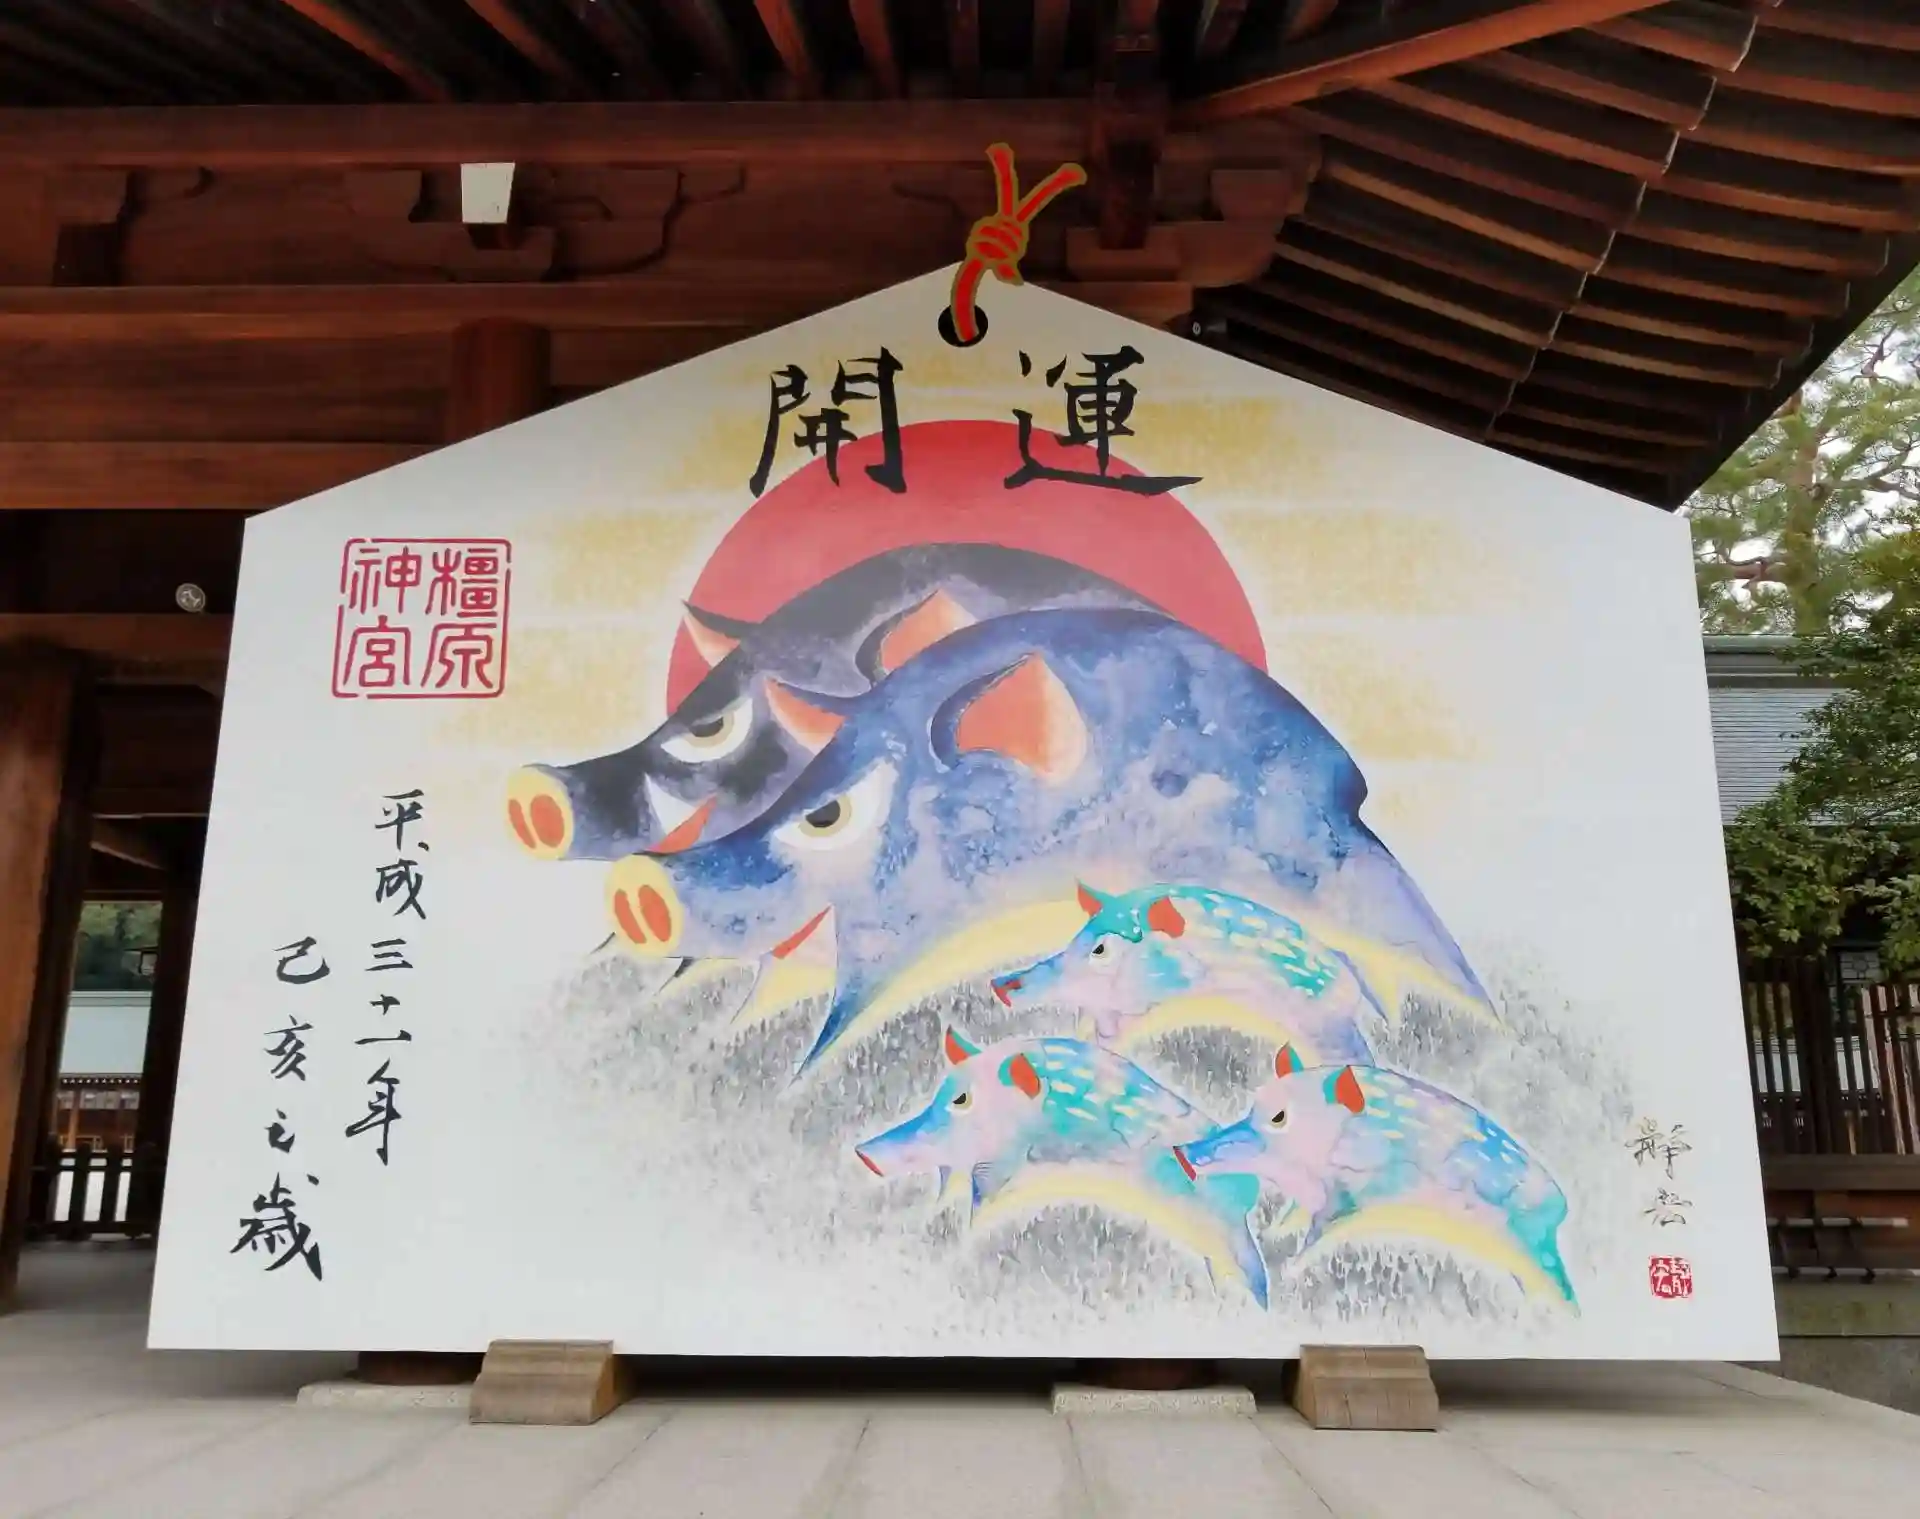 開運
橿原
神宮
平成三十一年
己亥之歳